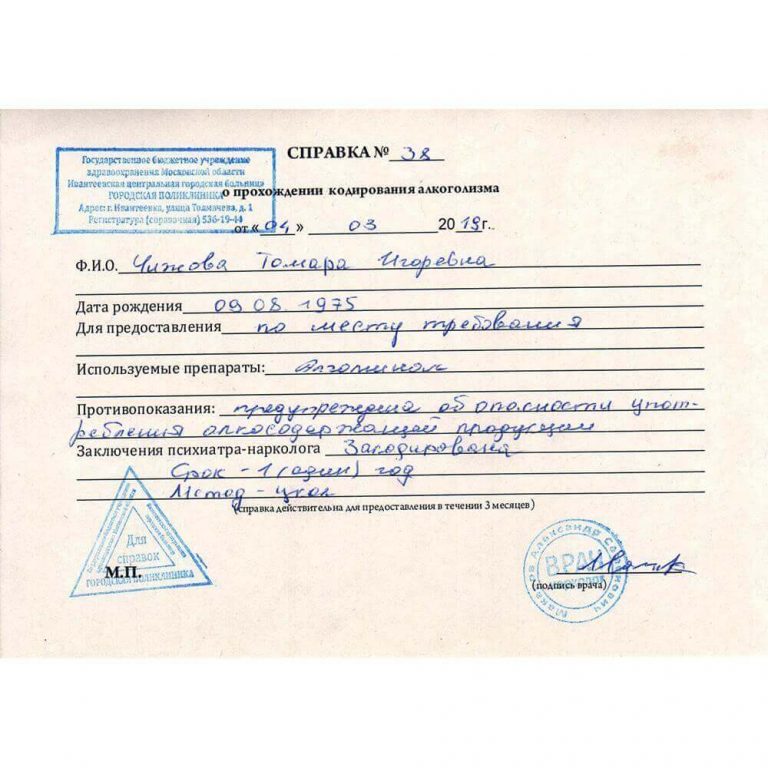 Государственное бюджетное учреждение
здравоохранения Московской области
Ивантеевская центральная городская больница
ГОРОДСКАЯ ПОЛИКЛИНИКА
Адрес: г. Ивантеевка, улица Толмачева, д. 1
Регистратура (справочная) 536-19-44
СПРАВКА № 38
о прохождении кодирования алкоголизма
от «04» 03 2019г..
Ф.И.О. Чижова Томара Игоревна
Дата рождения 09 08 1975
Для предоставления по месту требования
Используемые препараты:
Противопоказания: предупреждена об опасности упот-
ребления алкосодержащей продукции
Заключения психиатра-нарколога Закодирована
Срок - 1 (один) год
Метод - укол
(справка действительна для предоставления в течении 3 месяцев)
Для
справок
ГОРОДСКАЯ ПОЛИКЛИНИКА
М.П.
Макаров Александр
ВРАЧ
(подпись врача)